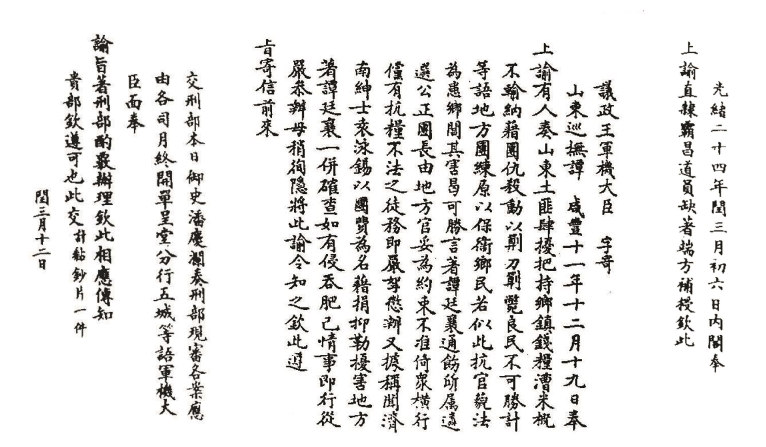 光緒二十四年閏三月初六日內閣奉
上諭直隸霸昌道員缺著端方補授欽此
議政王軍機大臣 字寄
山東巡撫譚 咸豐十一年十二月十九日奉
上諭有人奏山東土匪肆擾把持鄉鎮錢糧漕米概
不輸納藉團仇殺動以劓刀劓斃良民不可勝計
等語地方團練原以保衛鄉民若似此抗官藐法
為患鄉閭其害曷可勝言著譚廷襄通飭所屬遴
選公正團長由地方官妥為約束不准倚眾橫行
僅有抗糧不法之徒務即嚴拏懲辦又據稱聞濟
南紳士袁泳錫以團費為名藉捐抑勒擾害地方
著譚廷襄一併確查如有侵吞肥己情事即行從
嚴參辦毋稍徇隱將此諭令知之欽此遵
旨寄信前來
交刑部本日御史潘慶瀾奏刑部現審各案應
由各司月終開單呈堂分行五城等語軍機大
臣面奉
諭旨著刑部酌覈辦理欽此相應傳知
貴部欽遵可也此交 計黏鈔片一件
閏三月十二日